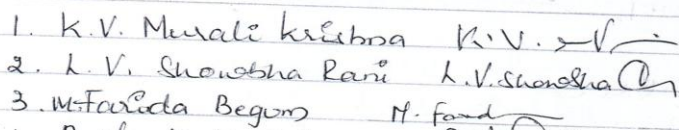 1. K.V. Murali Krishna K.V.
2. L.V. Showbha Rani L.V. Showbha
3. M. Farida Begum M. Farid